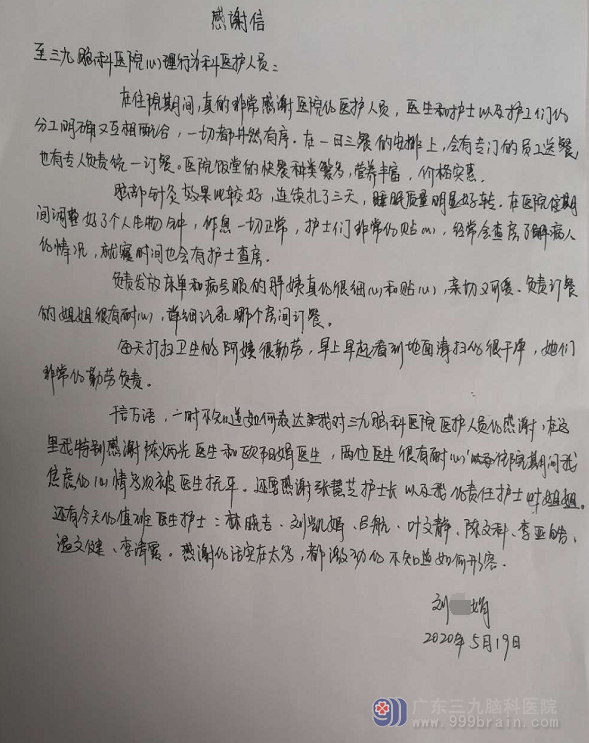 感谢信
至三九脑科医院心理行为科医护人员:
在住院期间,真的非常感谢医院的医护人员,医生和护士以及护工们的
分工明确又互相配合,一切都井然有序。在一日三餐的安排上,会有专门的员工送餐,
也有专人负责统一订餐。医院饭堂的快餐种类繁多,营养丰富,价格实惠.
脑部针灸效果比较好,连续扎了三天,睡眠质量明显好转。在医院住期
间调整好了个人生物钟,作息一切正常,护士们非常的贴心,经常会查房了解病人
的情况,就寝时间也会有护士查房.
负责发放床单和病号服的胖姨真的很细心和贴心,亲切又可爱。负责订餐
的姐姐很有耐心,详细记录哪个房间订餐。
每天打扫卫生的阿姨很勤劳,早上早起看到地面清扫的很干净,她们
非常的勤劳负责。
千言万语,一时不知道如何表达我对三九脑科医院医护人员的感谢,在这
里我特别感谢陈炳光医生和欧阳娟医生,两位医生很有耐心,住院期间我
焦虑的心情多次被医生抚平。还要感谢张慧芝护士长以及我的责任护士叶姐姐.
还有今天的值班医生护士:林晓吉、刘凯娟、吕航、叶文静、陈文科、李亚皓、
温文健、李清霞。感谢的话实在太多,都激动的不知道如何形容.
刘 娟
2020年5月19日
广东三九脑科医院
www.999brain.com